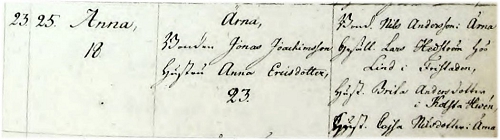 23. 25. Anna,
18.
Ärna,
Bonden Jonas Joachimsson
Hustru Anna Ersdotter,
23.
Bond. Nils Andersson i Ärna
Lars Hedström
Lind i Fristaden,
Hust. Brita Andersdotter
i
Hust. Cajsa Nilsdotter i Ärna